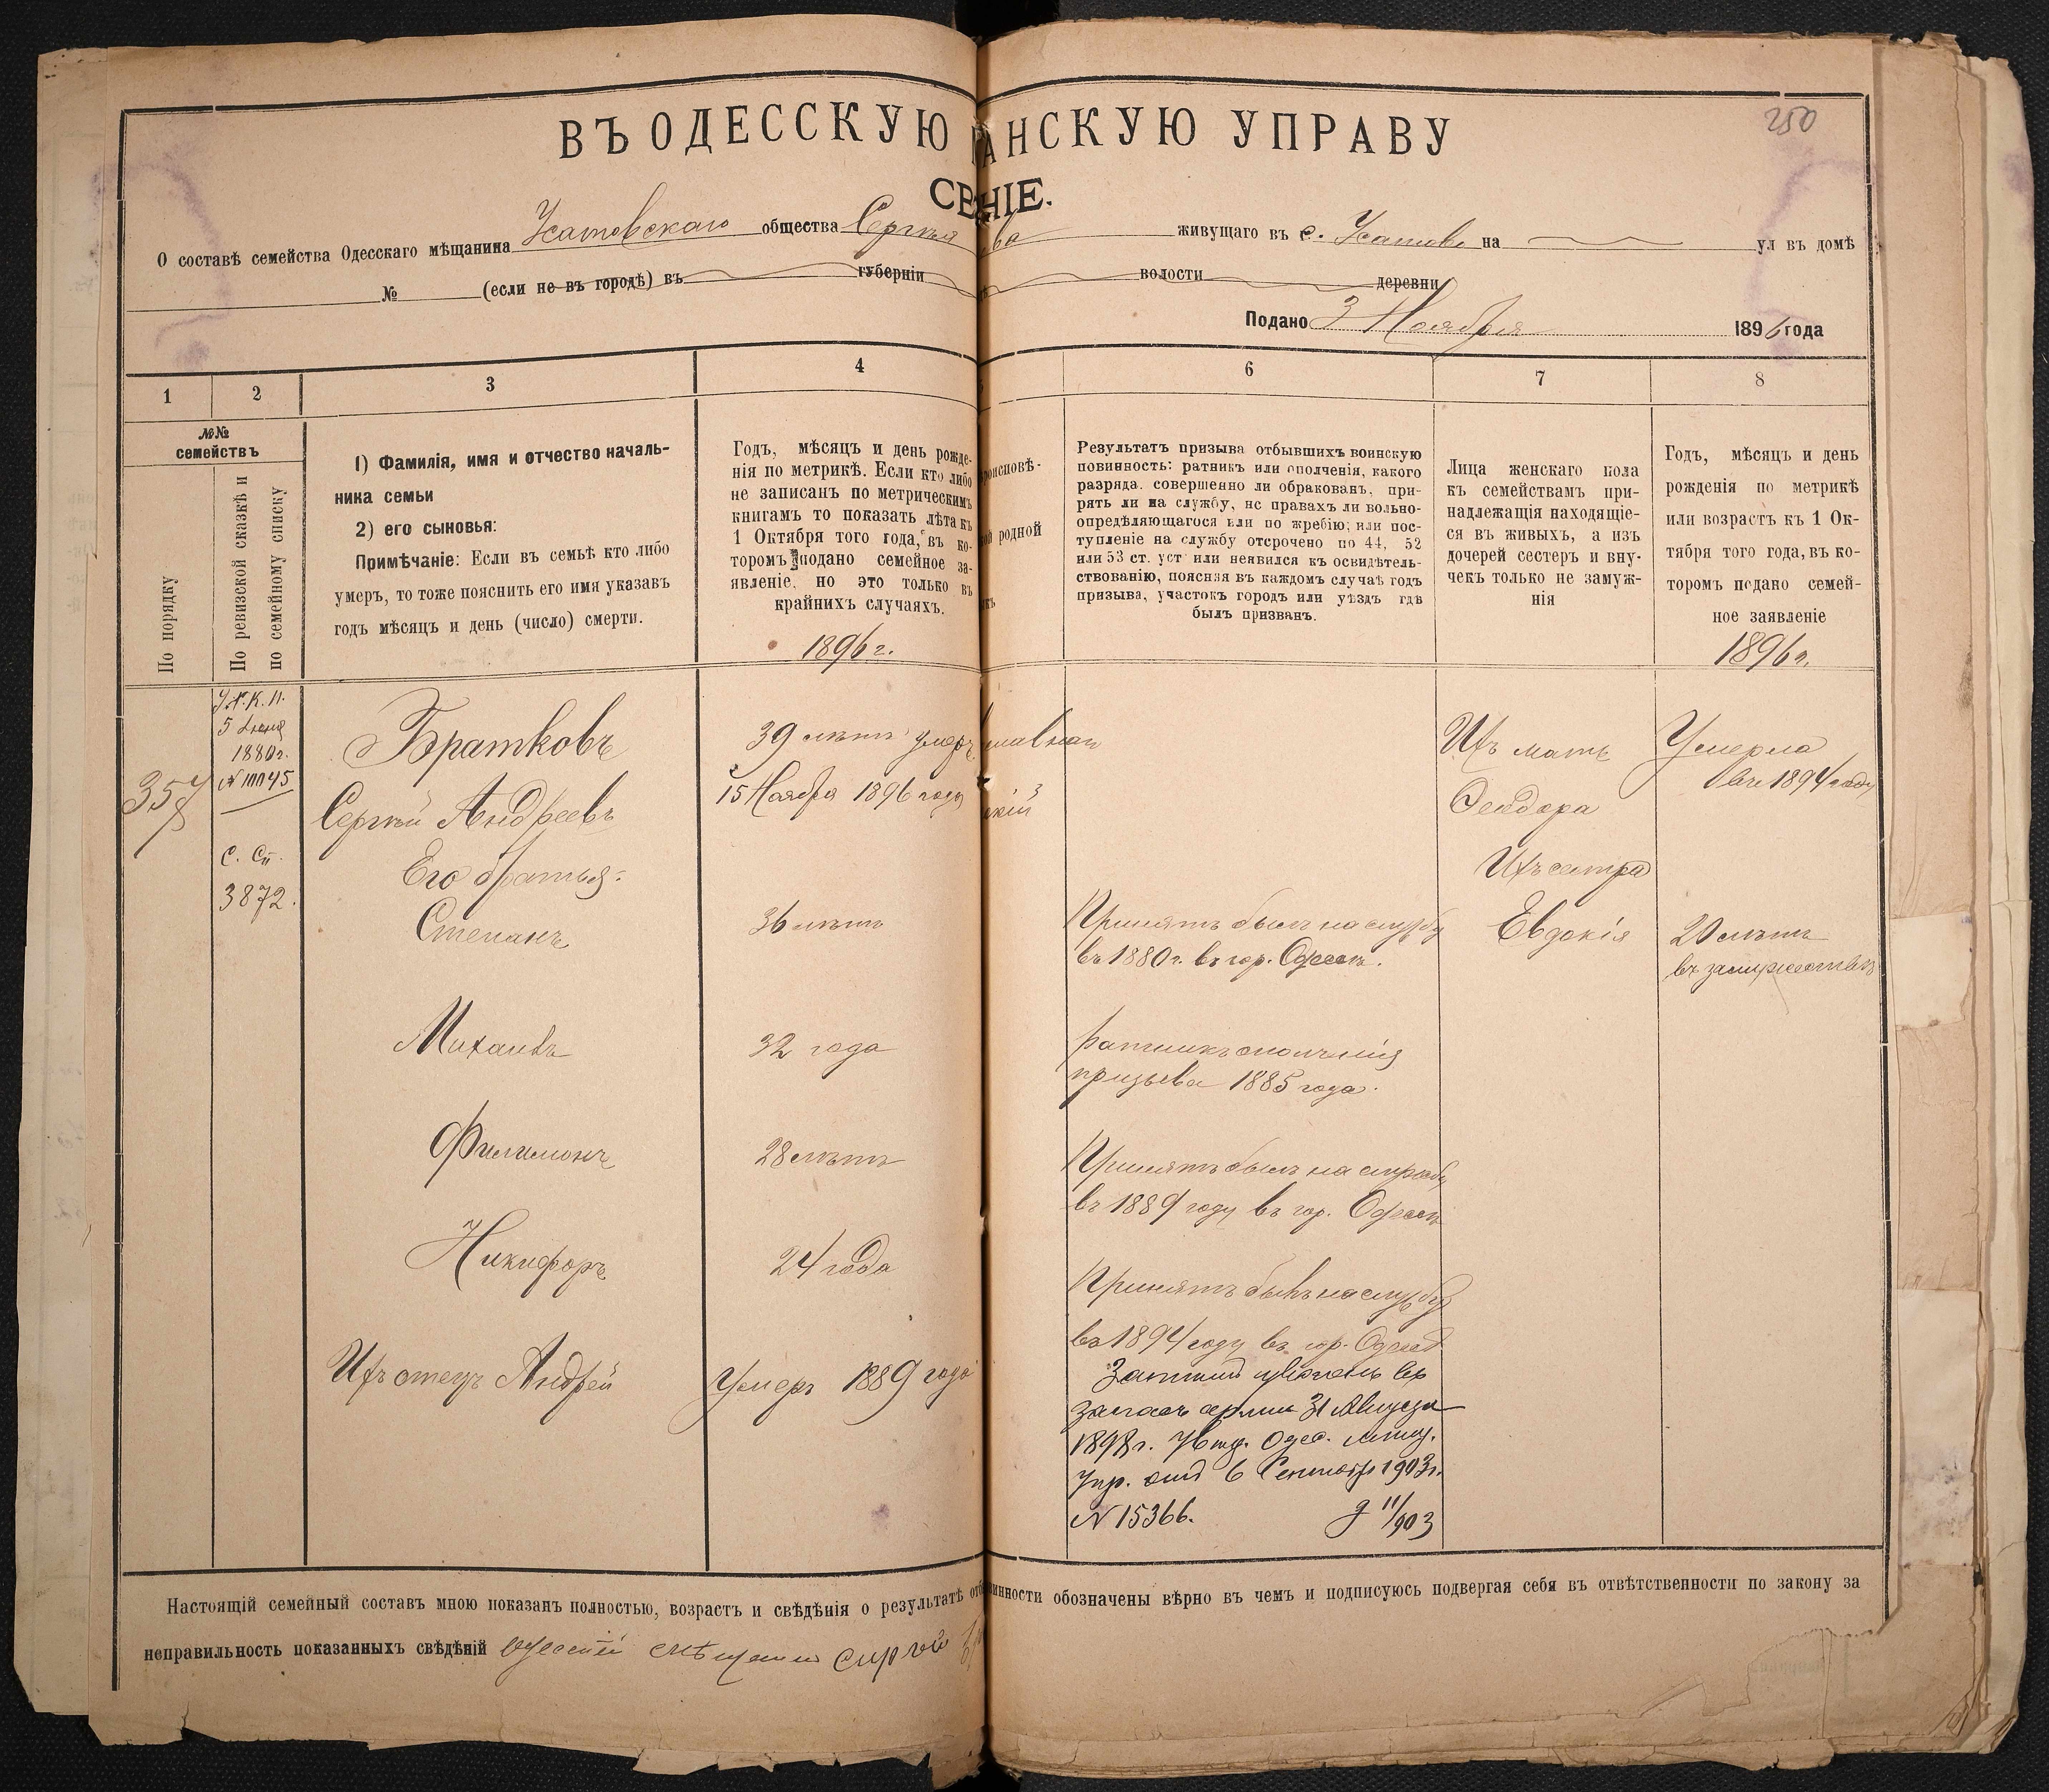 250
ВЪ ОДЕССКУЮ АНСКУЮ УПРАВУ
СЕ НІЕ.
О составѣ семейства Одесскаго мѣщанина Усатовскаго общества Сергѣя ва живущаго въ с. Усатово на ул въ домѣ
№ (если не въ городѣ) въ губерніи волости деревни
Подано 3 Ноября 1896 года
1 2 3 4 5 6 7 8
№№ семействъ
По порядку
По ревизской сказкѣ и
по семейному списку
1) Фамилія, имя и отчество началь-
ника семьи
2) его сыновья:
Примѣчаніе: Если въ семьѣ кто либо
умеръ, то тоже пояснить его имя указавъ
годъ мѣсяцъ и день (число) смерти.
Годъ, мѣсяцъ и день рожде-
нія по метрикѣ. Если кто либо
не записанъ по метрическимъ
книгамъ то показать лѣта къ
1 Октября того года, въ ко-
торомъ подано семейное за-
явленіе, но это только въ
крайнихъ случаяхъ.
1896 г.
роисповѣ-
ой родной
Результатъ призыва отбывшихъ воинскую
повинность: ратникъ или ополченія, какого
разряда. совершенно ли обракованъ, при-
рять ли на службу, нс правахъ ли вольно-
опредѣляющагося или по жребію; или пос-
тупленіе на службу отсрочено по 44, 52
или 53 ст. уст или неявился къ освидѣтель-
ствованію, поясняя въ каждомъ случаѣ годъ
призыва, участокъ городъ или уѣздъ гдѣ
былъ призванъ.
Лица женскаго пола
къ семействамъ при-
надлежащія находящіе-
ся въ живыхъ, а изъ
дочерей сестеръ и вну-
чекъ только не замуж-
нія
Годъ, мѣсяцъ и день
рожденія по метрикѣ
или возрастъ къ 1 Ок-
тября того года, въ ко-
торомъ подано семей-
ное заявленіе
1896 г.
357
5 Іюня
1880 г.
С. Сп.
3872.
Братковъ
Сергѣй Андреевъ
39 лѣтъ умеръ
15 Ноября 1896 года
славной
скій
Ихъ мать
Феодора
Умерла
въ 1894 году
Его братья:
Степанъ
36 лѣтъ
Принятъ былъ на службу
въ 1880 г. въ гор. Одессѣ.
Ихъ сестра
Евдокія
20 лѣтъ
въ замужествѣ
Михаилъ
32 года
Ратникъ ополченія
призыва 1885 года.
Филимонъ
28 лѣтъ
Принятъ былъ на службу
въ 1889 году въ гор. Одессѣ
Никифоръ
24 года
Принятъ былъ на службу
въ 1894 году въ гор. Одессѣ
уволенъ въ
запасъ арміи 31 Августа
1898 г. Одес. мѣщ.
Упр. отъ 6 Сентября 1903 г.
№ 15366. 11/903
Ихъ отецъ Андрей
Умеръ 1889 года
Настоящій семейный составъ мною показанъ полностью, возрастъ и свѣдѣнія о результатѣ отб инности обозначены вѣрно въ чемъ и подписуюсь подвергая себя въ отвѣтственности по закону за
неправильность показанныхъ свѣдѣній